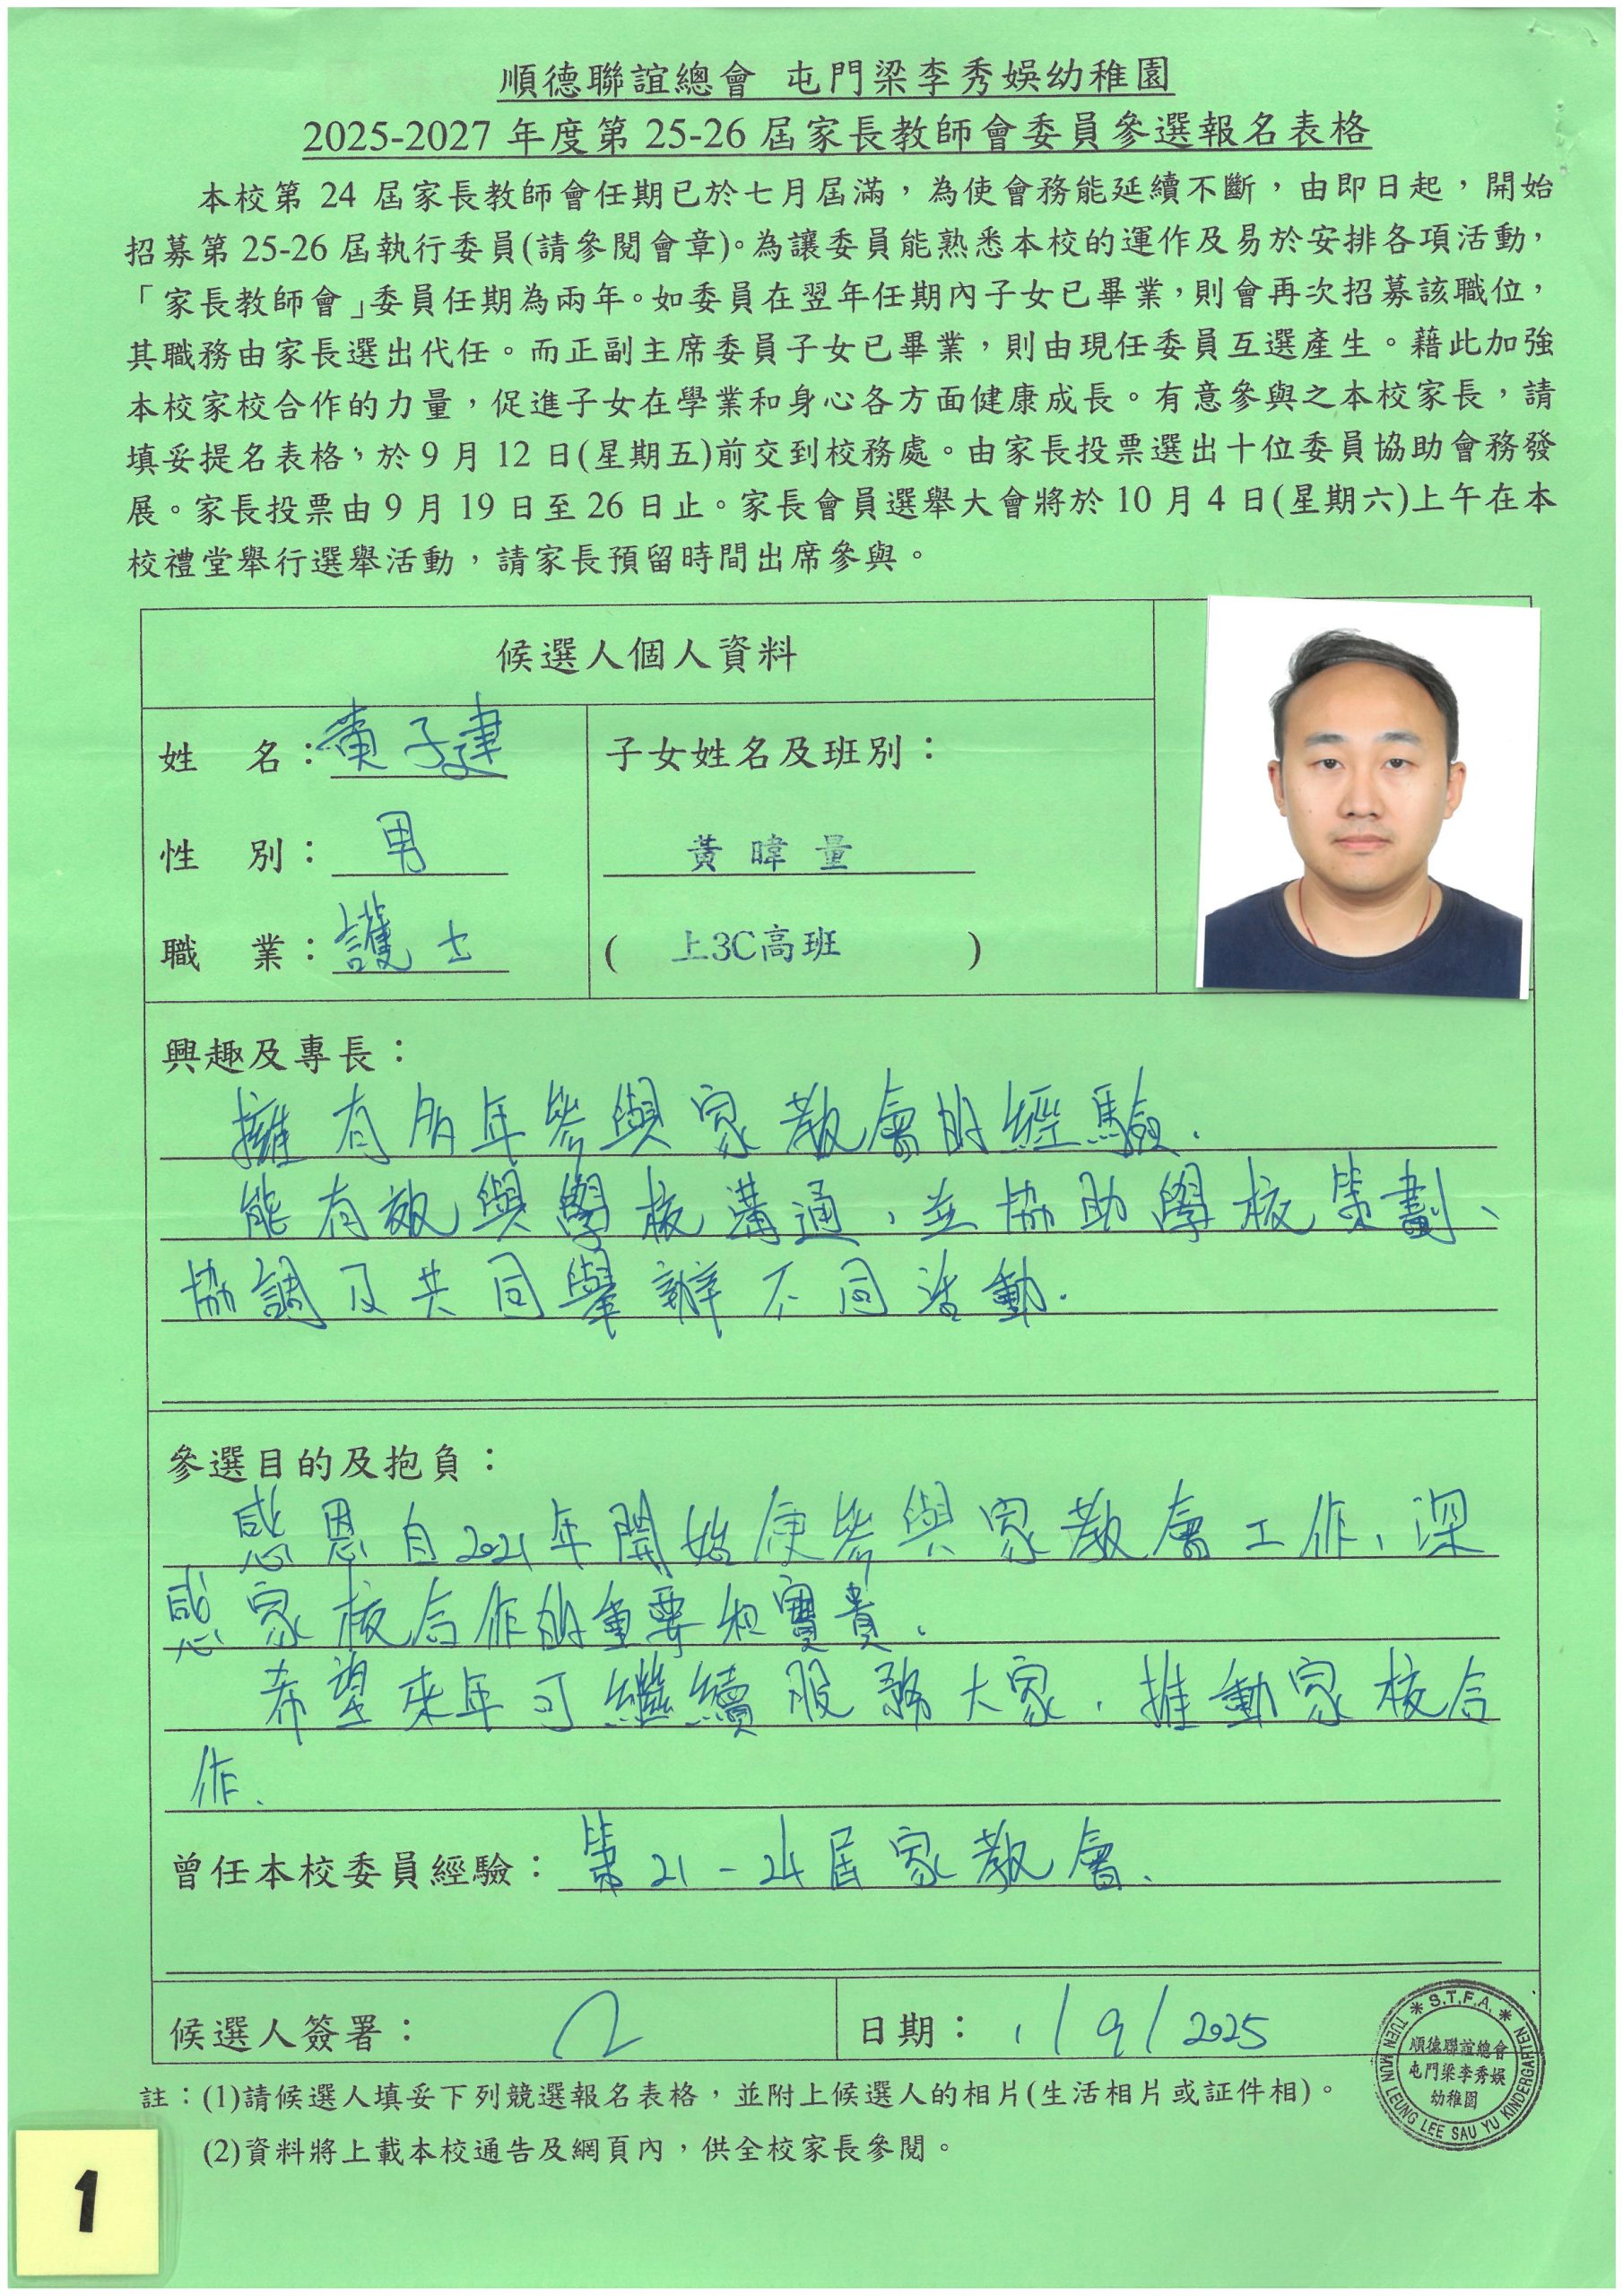 順德聯誼總會 屯門梁李秀娛幼稚園
2025-2027 年度第 25-26 屆家長教師會委員參選報名表格
本校第 24 屆家長教師會任期已於七月屆滿，為使會務能延續不斷，由即日起，開始
招募第 25-26 屆執行委員(請參閱會章)。為讓委員能熟悉本校的運作及易於安排各項活動，
「家長教師會」委員任期為兩年。如委員在翌年任期內子女已畢業，則會再次招募該職位，
其職務由家長選出代任。而正副主席委員子女已畢業，則由現任委員互選產生。藉此加強
本校家校合作的力量，促進子女在學業和身心各方面健康成長。有意參與之本校家長，請
填妥提名表格，於 9 月 12 日(星期五)前交到校務處。由家長投票選出十位委員協助會務發
展。家長投票由 9 月 19 日至 26 日止。家長會員選舉大會將於 10 月 4 日(星期六)上午在本
校禮堂舉行選舉活動，請家長預留時間出席參與。
候選人個人資料
姓 名：黃子建
子女姓名及班別：
性 別：男
黃暐量
職 業：護士
( 上3C高班 )
興趣及專長：
擁有多年參與家教會的經驗.
能有效與學校溝通，並協助學校策劃、
協調及共同舉辦不同活動.
參選目的及抱負：
感恩自2021年開始便參與家教會工作，深
感家校合作的重要和寶貴.
希望來年可繼續服務大家，推動家校合
作.
曾任本校委員經驗：第21-24屆家教會.
候選人簽署：
日期：1/9/2025
S.T.F.A.
TUEN MUN LEUNG LEE SAU YU KINDERGARTEN
順德聯誼總會
屯門梁李秀娛
幼稚園
註：(1)請候選人填妥下列競選報名表格，並附上候選人的相片(生活相片或証件相)。
(2)資料將上載本校通告及網頁內，供全校家長參閱。
1